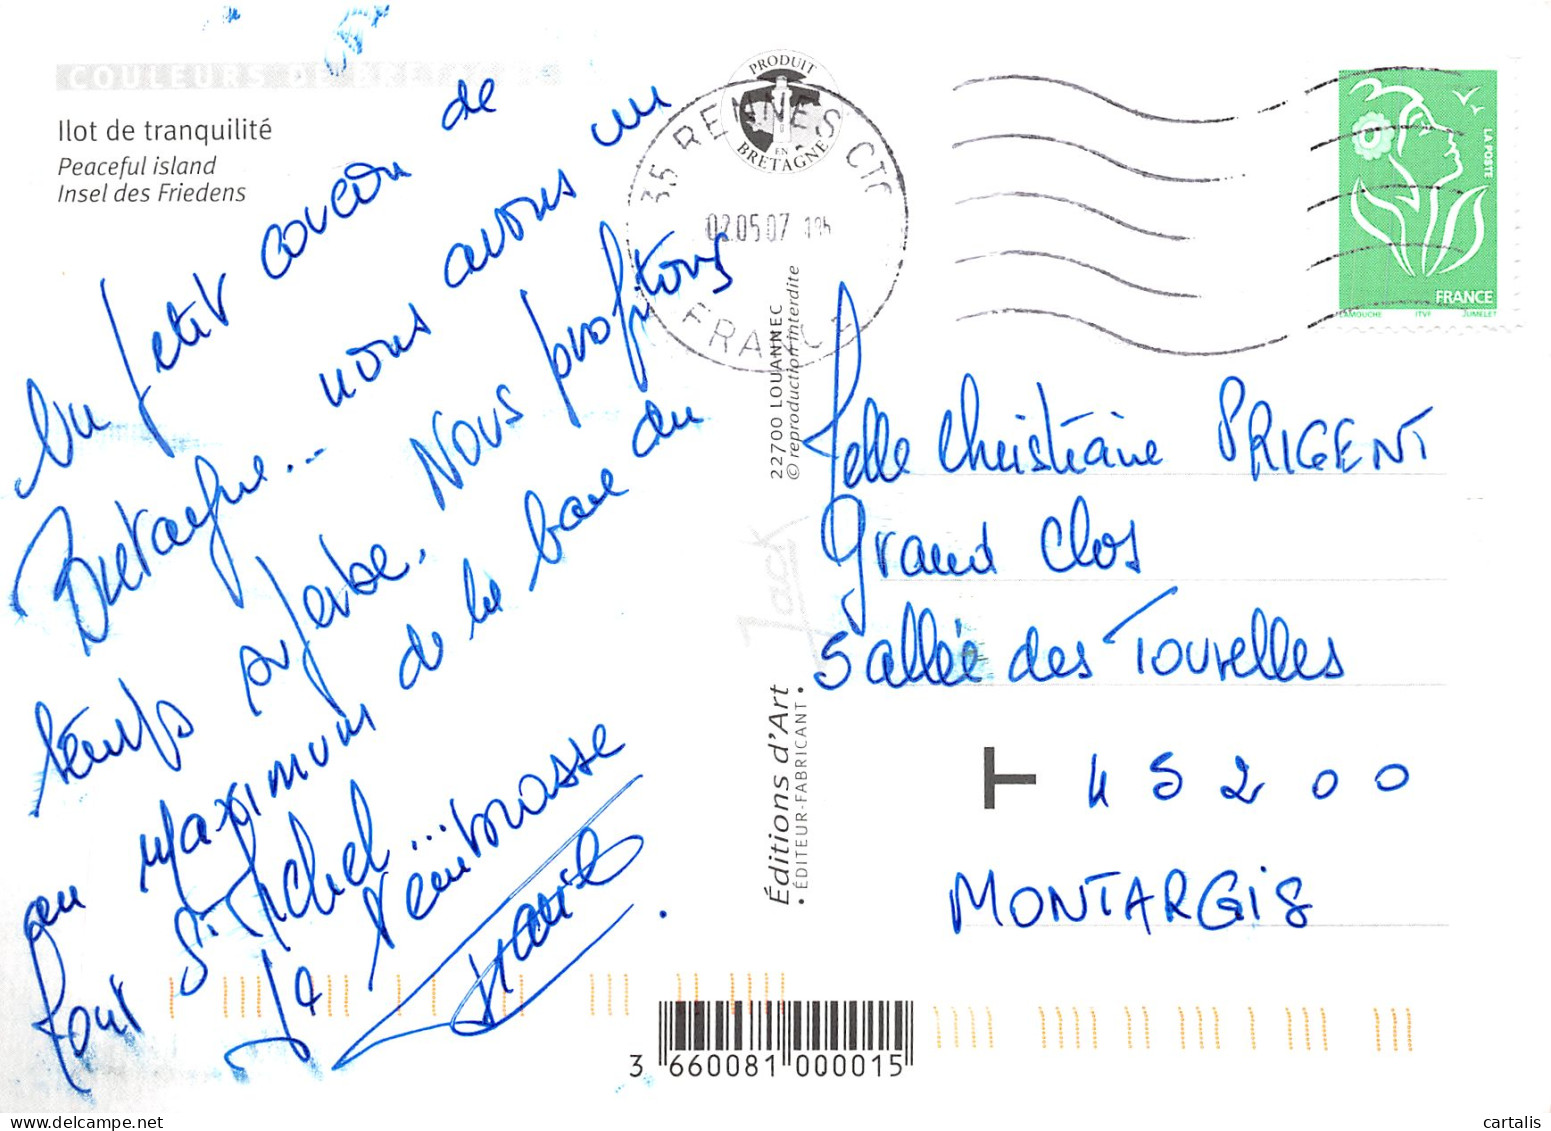 COULEURS DE BRETAGNE
Ilot de tranquilité
Peaceful island
Insel des Friedens
Un petit coucou de
Bretagne... nous avons un
temps superbe. Nous profitons
au maximum de la baie du
Mont St Michel...
Je t'embrasse
PRODUIT
EN
BRETAGNE
35 RENNES CTC
02.05.07
FRANCE
LA POSTE
FRANCE
LAMOUCHE ITVF JUMELET
22700 LOUANNEC
© reproduction interdite
Jack
Éditions d'Art
• ÉDITEUR-FABRICANT •
Melle Christiane PRIGENT
Grand Clos
5 allée des Tourelles
T 45200
MONTARGIS
3 660081 000015
cartalis